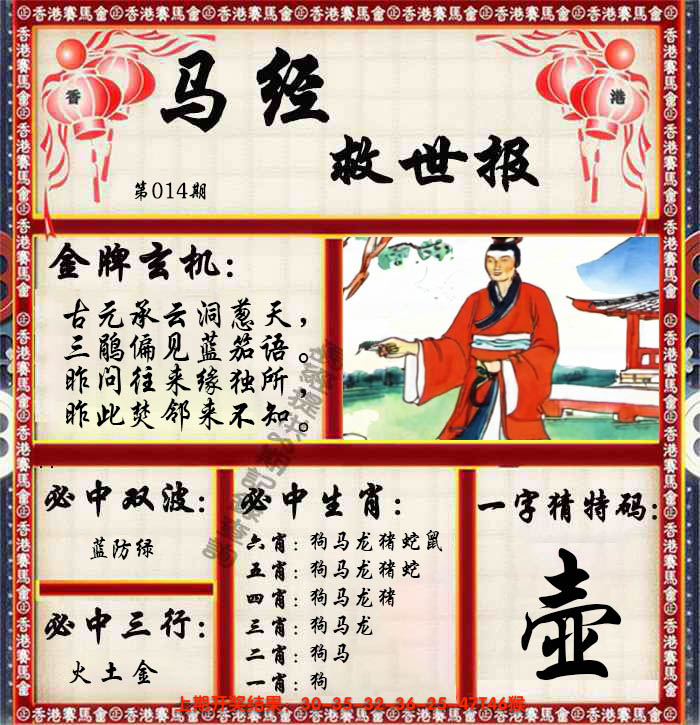 香港賽馬會
香
港
马经
救世报
第014期
金牌玄机：
古元承云洞葱天，
三鹃偏见蓝笳语。
昨问往来缘独所，
昨此焚邻来不知。
必中双波：
蓝防绿
必中三行：
火土金
必中生肖：
六肖：狗马龙猪蛇鼠
五肖：狗马龙猪蛇
四肖：狗马龙猪
三肖：狗马龙
二肖：狗马
一肖：狗
一字猜特码：
壶
上期开奖结果：30-35-32-36-25-47T46猴